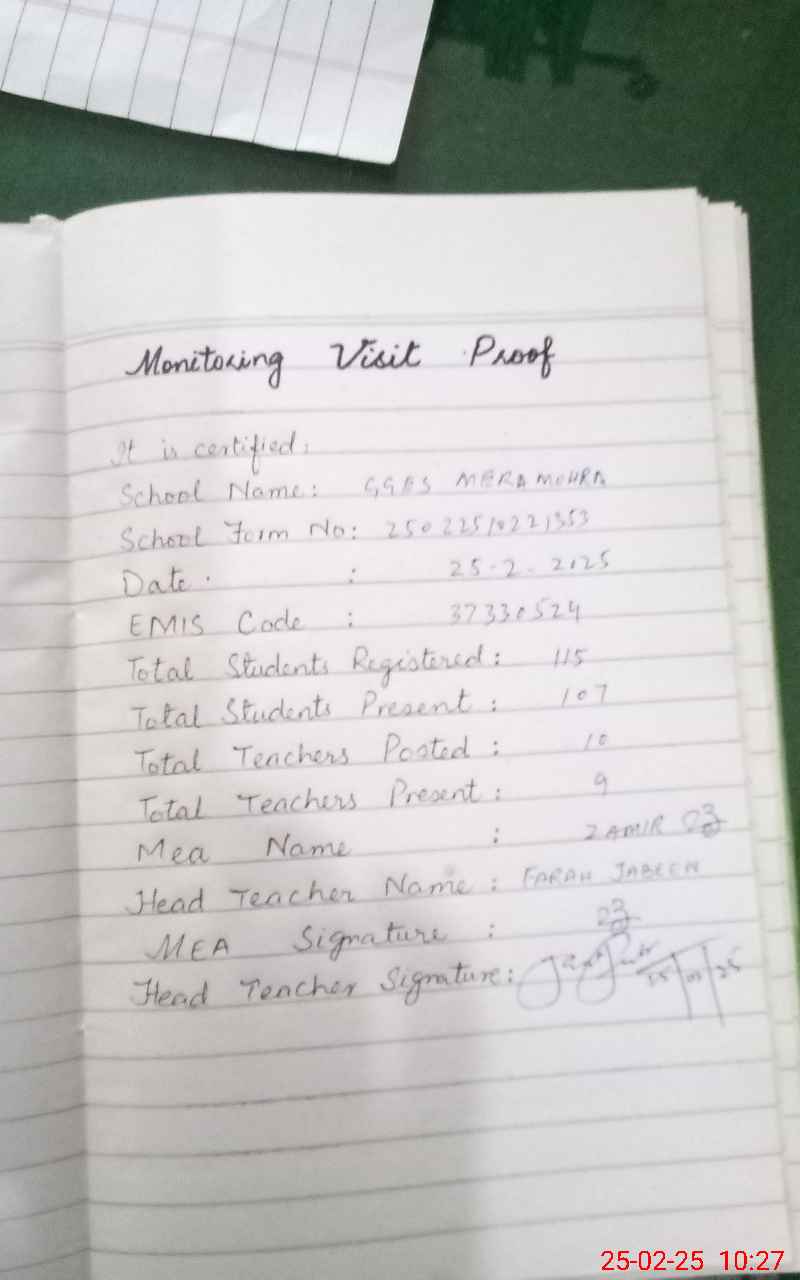 Monitoring Visit Proof
It is certified:
School Name: GGES MERA MOHRA
School Form No: 25022510221353
Date : 25-2-2025
EMIS Code : 37330524
Total Students Registered: 115
Total Students Present: 107
Total Teachers Posted: 10
Total Teachers Present: 9
Mea Name : ZAMIR
Head Teacher Name: FARAH JABEEN
MEA Signature :
Head Teacher Signature:
25-02-25 10:27